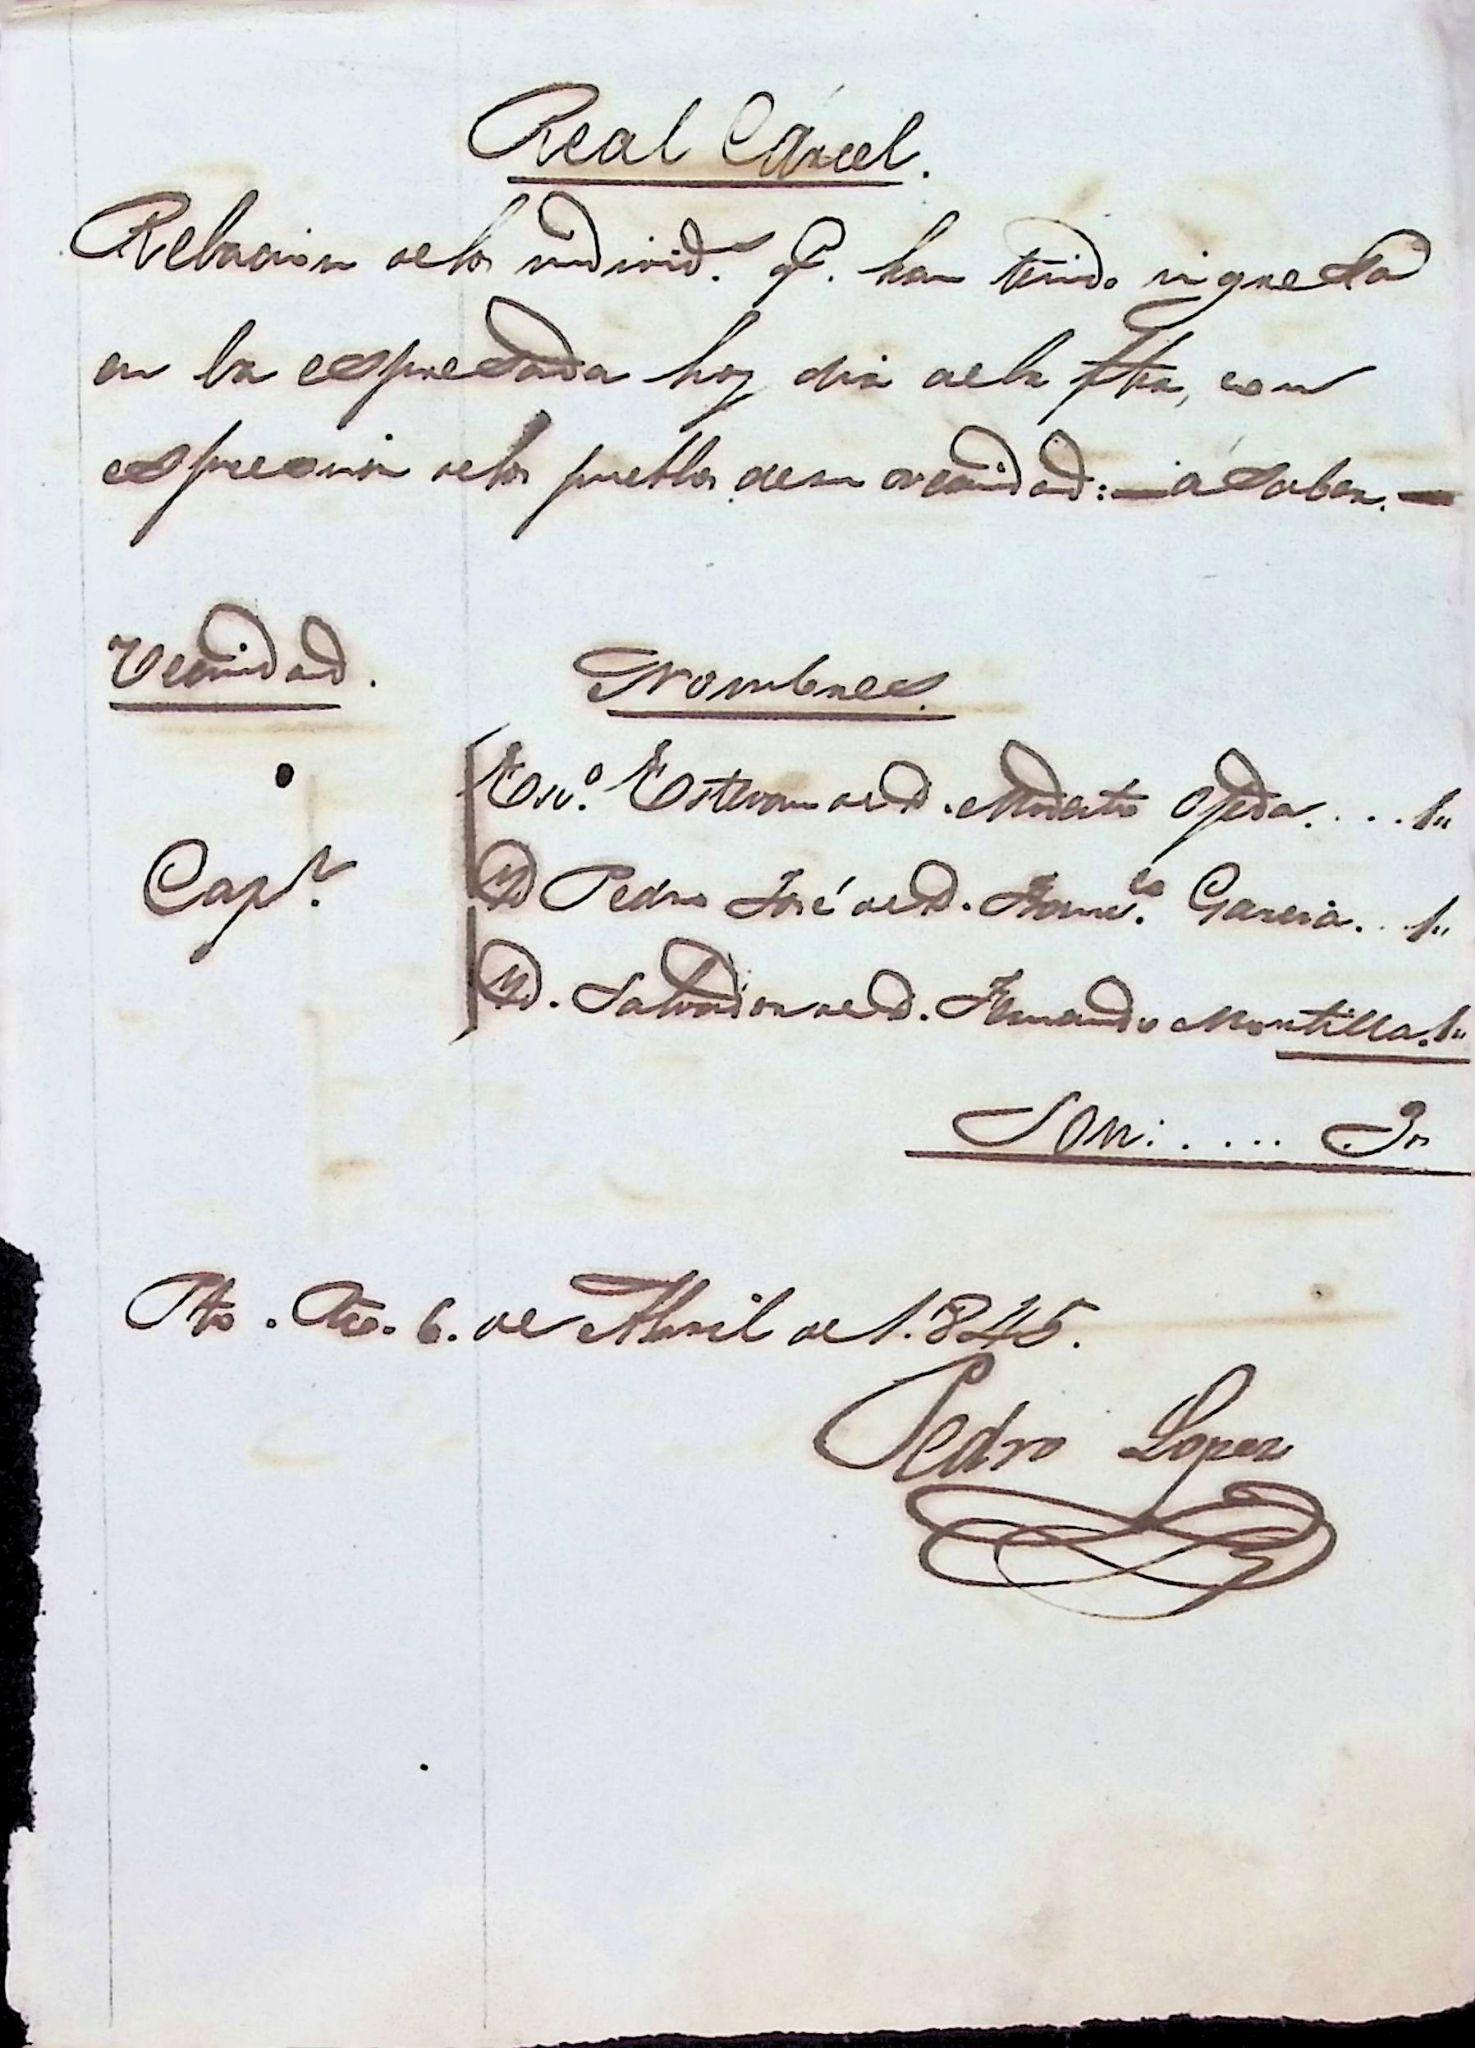 Real Cárcel.
Relacion de los individ.s q.e han tenido ingreso
en la espresada hoy dia de la fha, con
espresion de los pueblos de su vecindad: á saber.
Vecindad. Nombres.
Esv.o Estevan de D. Modesto Ojeda.... 1,,
Cap.l Yd Pedro José de D. Franc.co Garcia... 1,,
Yd. Salvador de D. Fernando Montilla. 1,,
Son:..... 3,,
Pto. Rco. 6. de Abril de 1.845.
Pedro Lopez